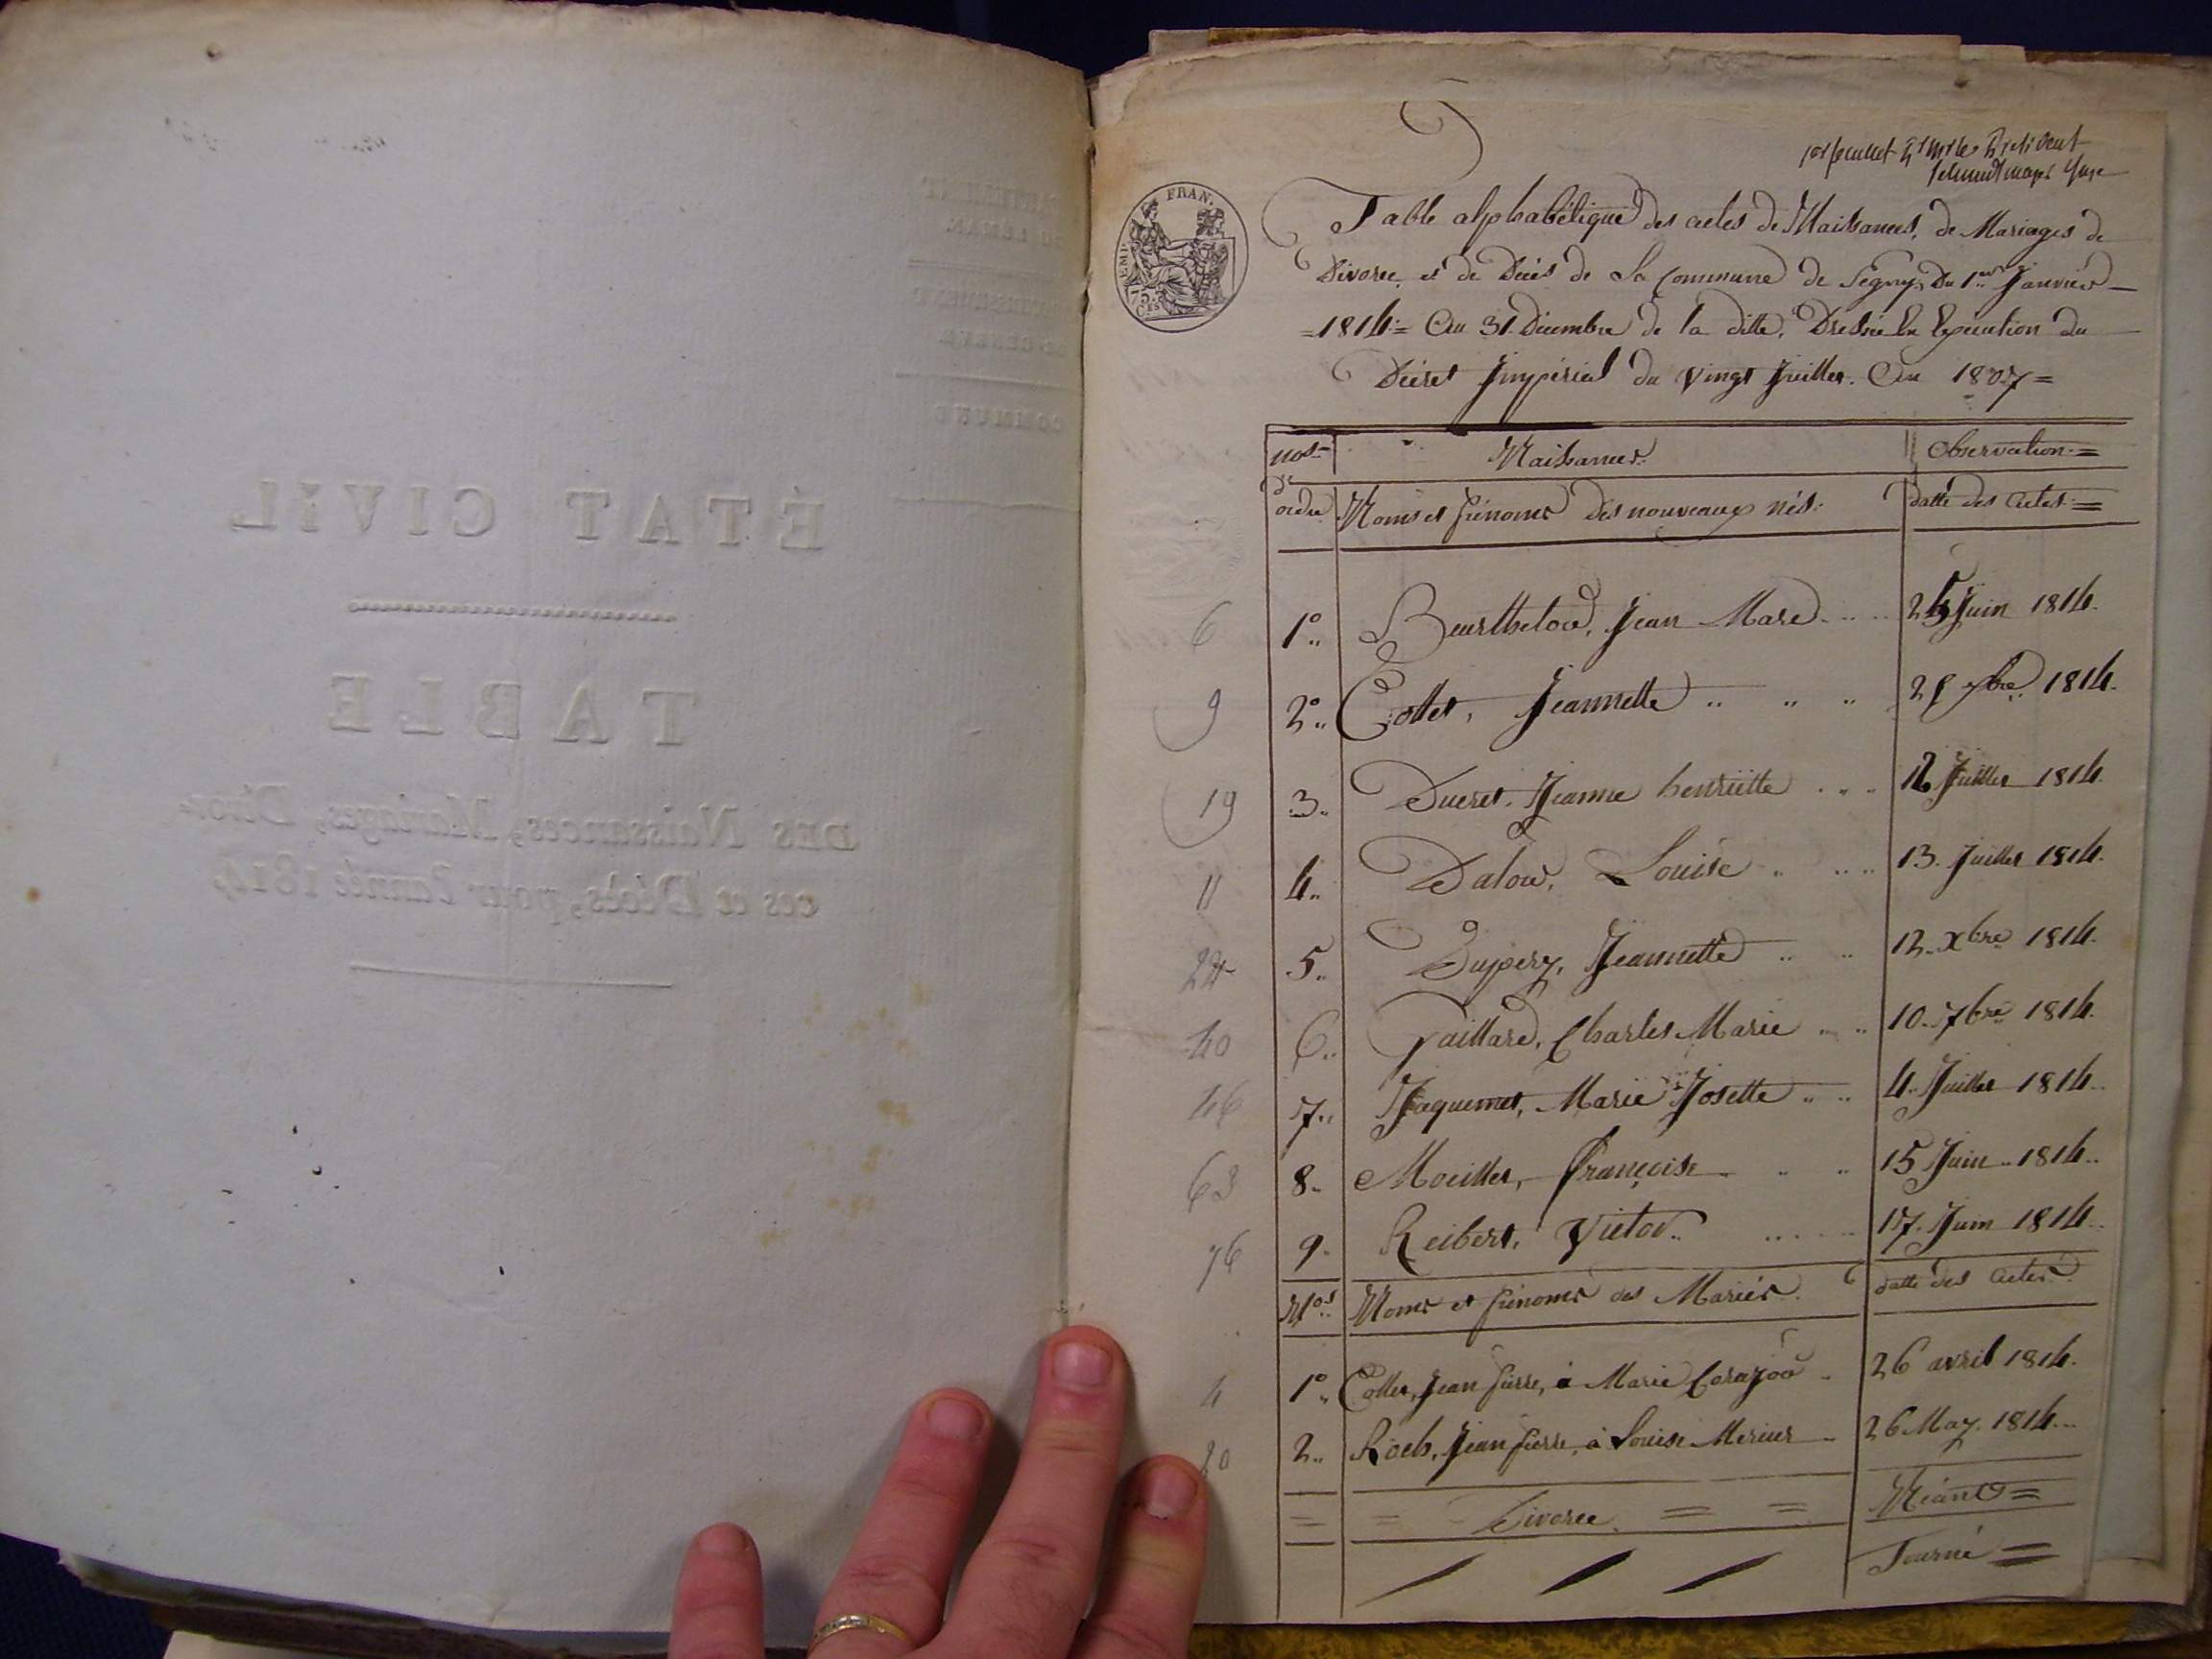 DÉPARTEMENT
DU LÉMAN.
ARRONDISSEMENT
DE GENÈVE.
COMMUNE
ÉTAT CIVIL
TABLE
DES Naissances, Mariages, Divor-
ces et Décès, pour l'année 1814,
EMP. FRAN.
75 Cs
Table alphabétique des actes de Naissances, de Mariages de
Divorce, et de Décès de La Commune de Segny, Du 1er Janvier
=1814= Au 31. Décembre de la ditte, Dressée En Exécution du
Décret Impérial du Vingt Juillet. An 1807=
nos Naissances. Observation=
de
ordre Noms et prénoms Des nouveaux nés. datte des Actes=
6 1° Jean Marc 25 Juin 1814.
9 2° Cottet, Jeannette 1814.
19 3 Ducret, Jeanne henriette 12 Juillet 1814.
11 4 Dalow, Louise 13. Juillet 1814.
22 5 Dupery, Jeannette 12. Xbre 1814.
40 6 Gaillard, Charles Marie 10. 7bre 1814.
46 7 Jaquemet, Marie Josette 4. Juillet 1814.
63 8 Mouillet, Françoise 15 Juin 1814.
76 9 Reibert, Victor 17. Juin 1814.
Nos Noms et prénoms des Mariés. datte des Actes.
4 1° Cottet, Jean pierre, à Marie 26 avril 1814.
20 2 Roch, Jean pierre, à Louise Mercier 26 May. 1814.
= = Divorce. = = Néant=
Tourné=